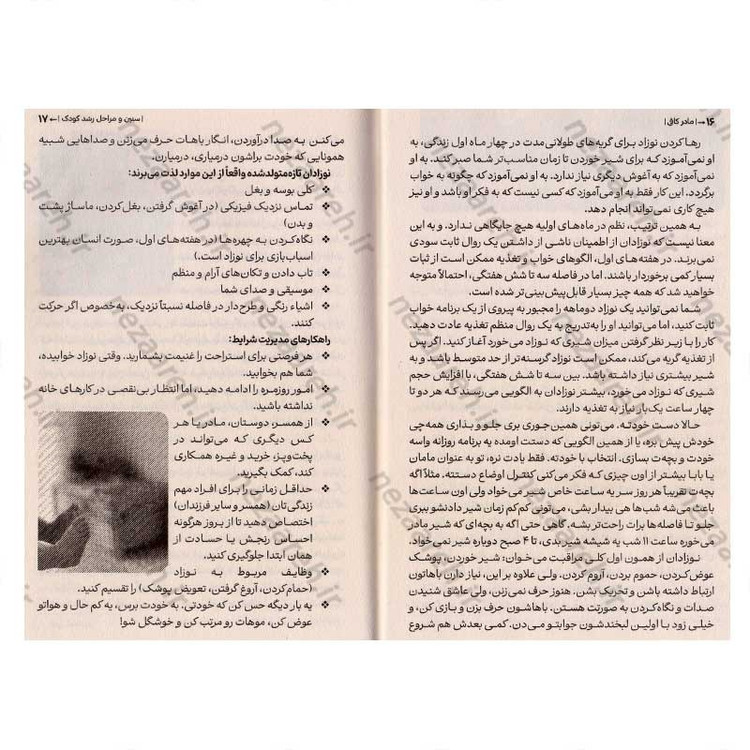 ۱۶ → | مادر کافی |
رها کردن نوزاد برای گریه‌های طولانی‌مدت در چهار ماه اول زندگی، به
او نمی‌آموزد که برای شیر خوردن تا زمان مناسب‌تر شما صبر کند. به او
نمی‌آموزد که به آغوش دیگری نیاز ندارد. به او نمی‌آموزد که چگونه به خواب
برگردد. این کار فقط به او می‌آموزد که کسی نیست که به فکر او باشد و او نیز
هیچ کاری نمی‌تواند انجام دهد.
به همین ترتیب، نظم در ماه‌های اولیه هیچ جایگاهی ندارد. و به این
معنا نیست که نوزادان از اطمینان ناشی از داشتن یک روال ثابت سودی
نمی‌برند. در هفته‌های اول، الگوهای خواب و تغذیه ممکن است از ثبات
بسیار کمی برخوردار باشند. اما در فاصله سه تا شش هفتگی، احتمالاً متوجه
خواهید شد که همه چیز بسیار قابل‌پیش‌بینی‌تر شده است.
شما نمی‌توانید یک نوزاد دوماهه را مجبور به پیروی از یک برنامه خواب
ثابت کنید، اما می‌توانید او را به‌تدریج به یک روال منظم تغذیه عادت دهید.
کار را با زیر نظر گرفتن میزان شیری که نوزاد می‌خورد آغاز کنید. اگر پس
از تغذیه گریه می‌کند، ممکن است نوزاد گرسنه‌تر از حد متوسط باشد و به
شیر بیشتری نیاز داشته باشد. بین سه تا شش هفتگی، با افزایش حجم
شیری که نوزاد می‌خورد، بیشتر نوزادان به الگویی می‌رسند که هر دو تا
چهار ساعت یک‌بار نیاز به تغذیه دارند.
حالا دست خودته. می‌تونی همین‌جوری بری جلو و بذاری همه‌چی
خودش پیش بره، یا از همین الگویی که دستت اومده یه برنامه روزانه واسه
خودت و بچه‌ت بسازی. انتخاب با خودته. فقط یادت نره، تو به عنوان مامان
یا بابا بیشتر از اون چیزی که فکر می‌کنی کنترل اوضاع دستته. مثلاً اگه
بچه‌ت تقریباً هر روز سر یه ساعت خاص شیر می‌خواد ولی اون ساعت‌ها
باعث می‌شه شب‌ها هی بیدار بشی، می‌تونی کم‌کم زمان شیر دادنشو ببری
جلو تا فاصله‌ها برات راحت‌تر بشه. گاهی حتی اگه به بچه‌ای که شیر مادر
می‌خوره ساعت ۱۱ شب یه شیشه شیر بدی، تا ۴ صبح دوباره شیر نمی‌خواد.
نوزادان از همون اول کلی مراقبت می‌خوان: شیر خوردن، پوشک
عوض کردن، حموم بردن، آروم کردن. ولی علاوه بر این، نیاز دارن باهاتون
ارتباط داشته باشن و تحریک بشن. هنوز حرف نمی‌زنن، ولی عاشق شنیدن
صدات و نگاه کردن به صورتت هستن. باهاشون حرف بزن و بازی کن، و
خیلی زود با اولین لبخندشون جوابتو می‌دن. کمی بعدش هم شروع
| سنین و مراحل رشد کودک | ← ۱۷
می‌کنن به صدا درآوردن، انگار باهات حرف می‌زنن و صداهایی شبیه
همونایی که خودت براشون درمیاری، درمیارن.
نوزادان تازه‌متولدشده واقعاً از این موارد لذت می‌برند:
❖ کلی بوسه و بغل
❖ تماس نزدیک فیزیکی (در آغوش گرفتن، بغل کردن، ماساژ پشت
و بدن)
❖ نگاه کردن به چهره‌ها (در هفته‌های اول، صورت انسان بهترین
اسباب‌بازی برای نوزاد است.)
❖ تاب دادن و تکان‌های آرام و منظم
❖ موسیقی و صدای شما
❖ اشیاء رنگی و طرح‌دار در فاصله نسبتاً نزدیک، به‌خصوص اگر حرکت
کنند.
راهکارهای مدیریت شرایط:
❖ هر فرصتی برای استراحت را غنیمت بشمارید. وقتی نوزاد خوابیده،
شما هم بخوابید.
❖ امور روزمره را ادامه دهید، اما انتظار بی‌نقصی در کارهای خانه
نداشته باشید.
❖ از همسر، دوستان، مادر یا هر
کس دیگری که می‌تواند در
پخت‌وپز، خرید و غیره همکاری
کند، کمک بگیرید.
❖ حداقل زمانی را برای افراد مهم
زندگی‌تان (همسر و سایر فرزندان)
اختصاص دهید تا از بروز هرگونه
احساس رنجش یا حسادت از
همان ابتدا جلوگیری کنید.
❖ وظایف مربوط به نوزاد
(حمام کردن، آروغ گرفتن، تعویض پوشک) را تقسیم کنید.
❖ یه بار دیگه حس کن که خودتی. به خودت برس، یه کم حال و هواتو
عوض کن، موهات رو مرتب کن و خوشگل شو!
nezaareh.ir